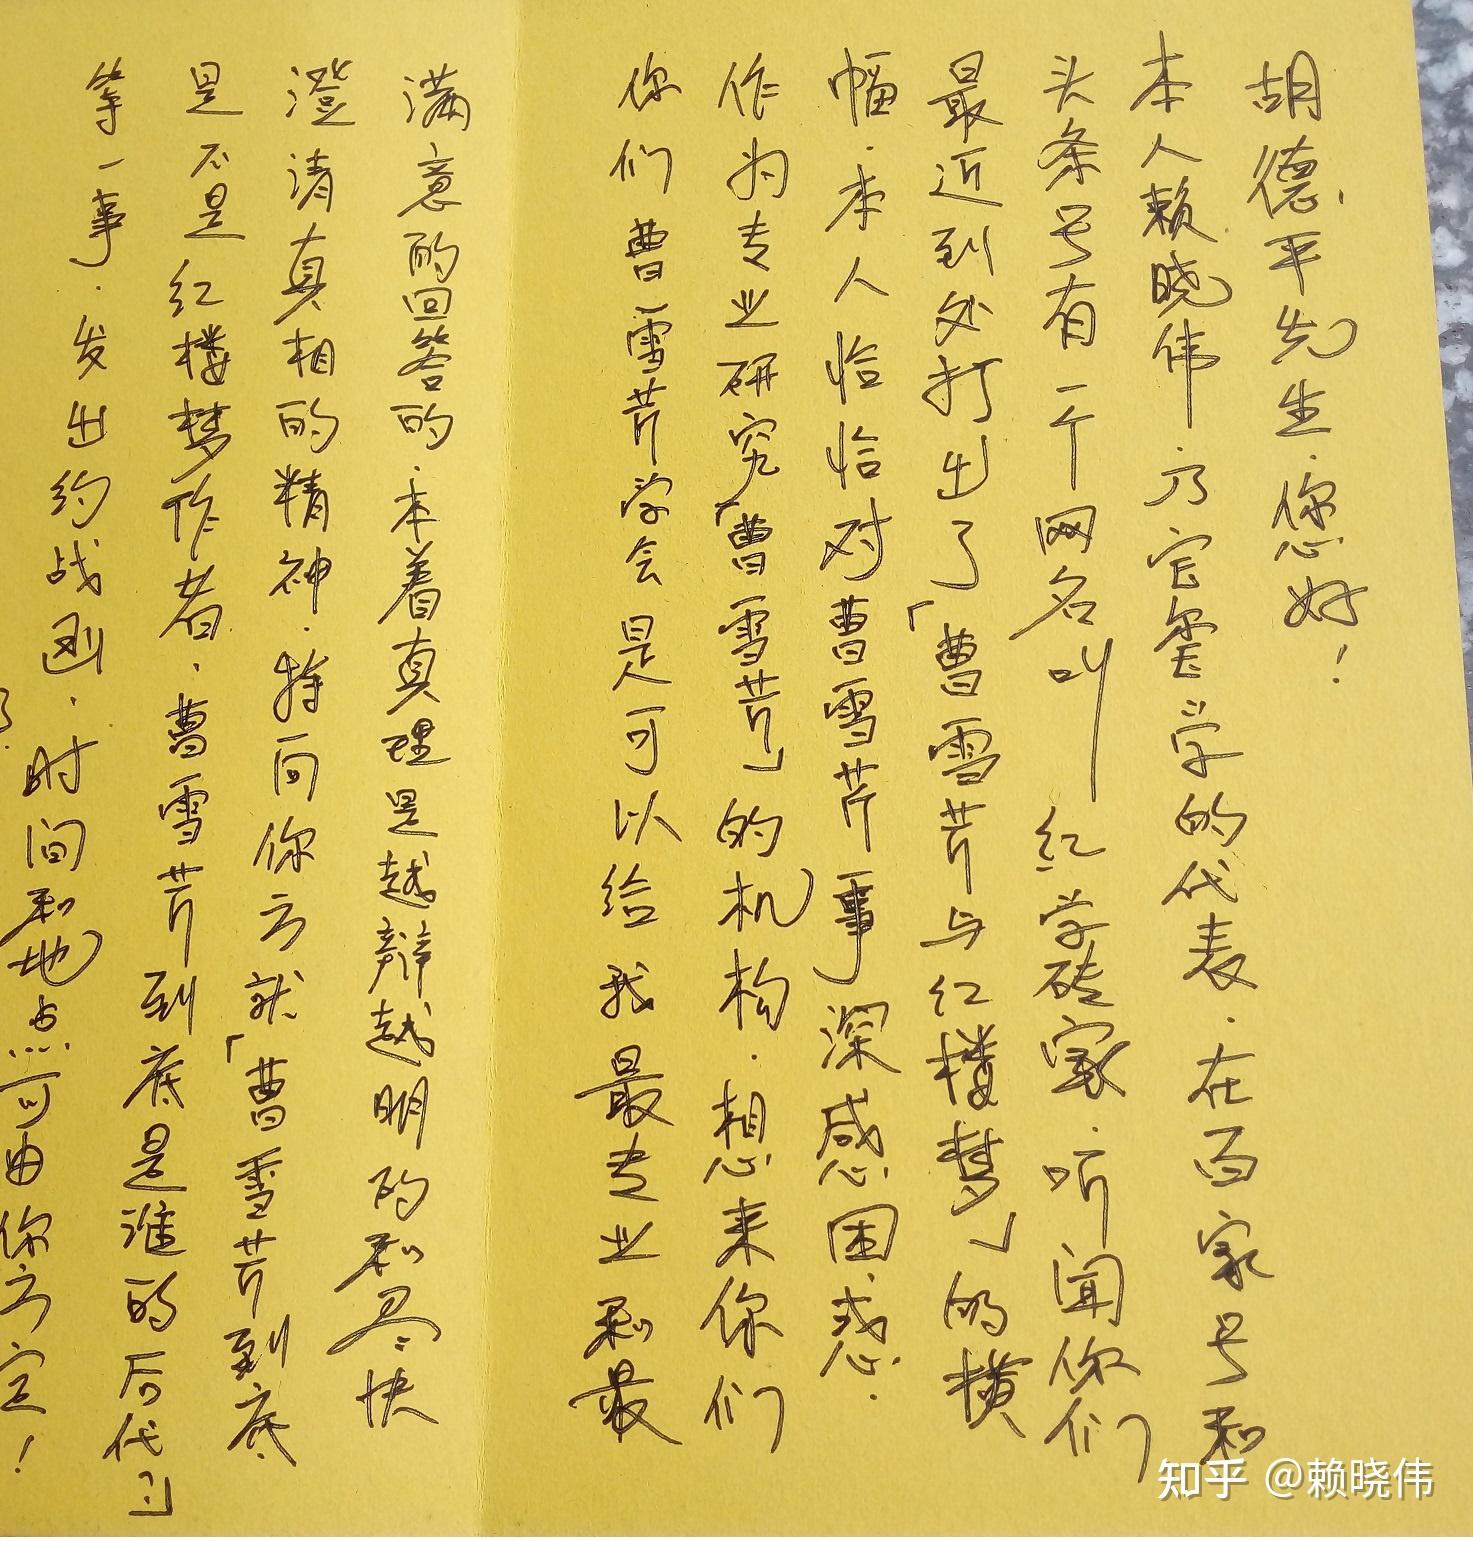 胡德平先生.您好！
本人赖晓伟.乃宝玺学的代表.在百家号和
头条号有一个网名叫红学砖家.听闻你们
最近到处打出了「曹雪芹与红楼梦」的横
幅.本人恰恰对曹雪芹事深感困惑.
作为专业研究「曹雪芹」的机构.想来你们
你们曹雪芹学会是可以给我最专业和最
满意的回答的.本着真理是越辩越明的和尽快
澄清真相的精神.特向你方就「曹雪芹到底
是不是红楼梦作者.曹雪芹到底是谁的后代」
等一事.发出约战函.时间和地点可由你方定！
知乎 @赖晓伟